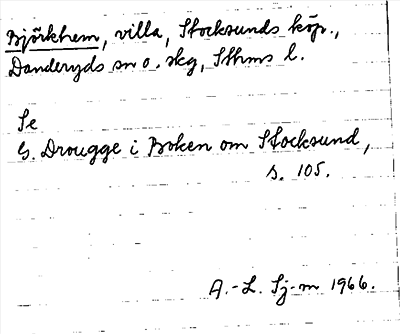 Björkhem, villa, Stocksunds köp.,
Danderyds sn o. skg, Sthms l.
Se
G. Drougge i Boken om Stocksund,
s. 105.
A.-L. Sj-m 1966.